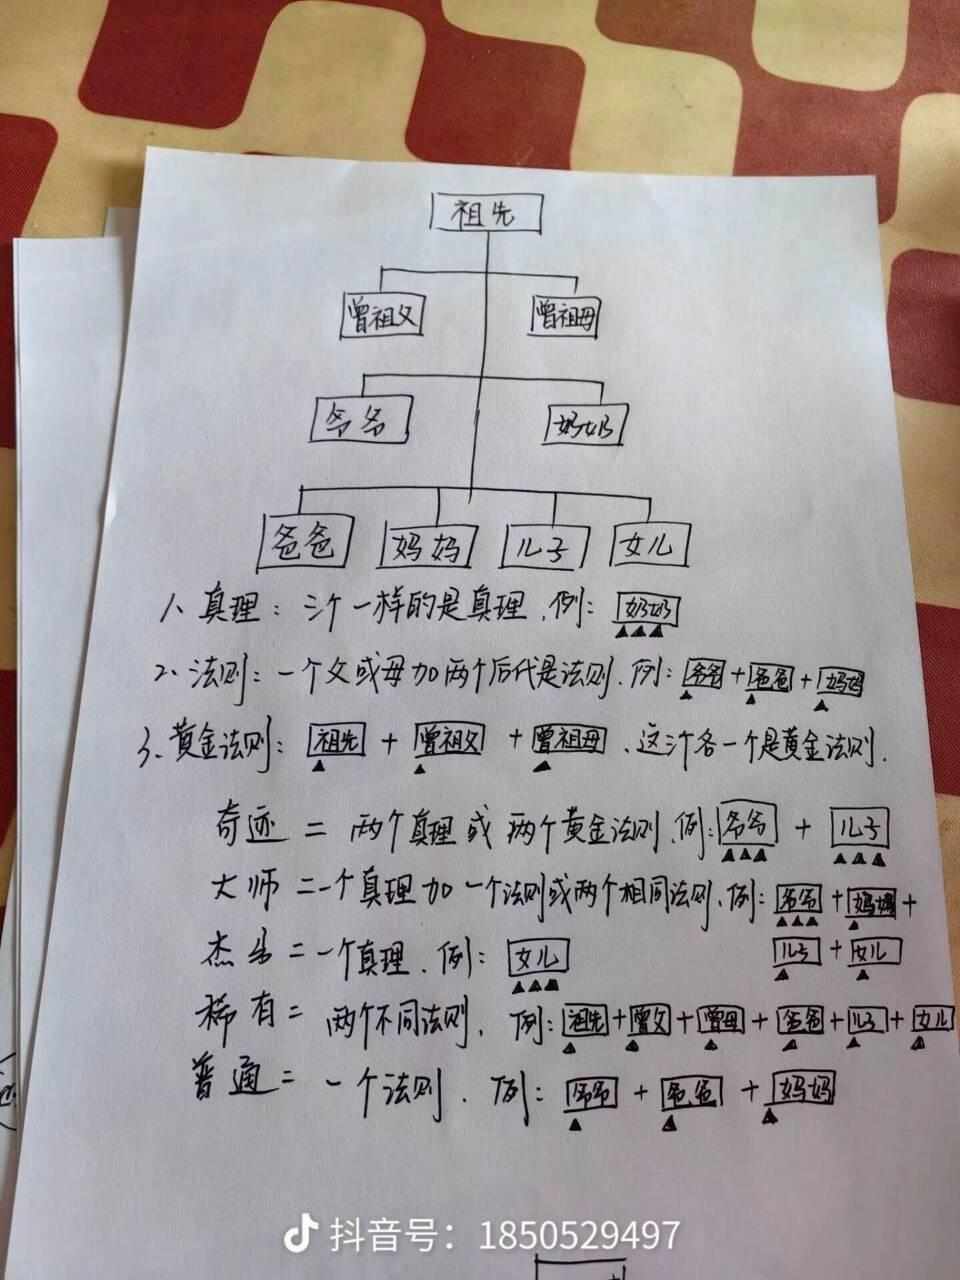 祖先
曾祖父 曾祖母
爷爷 奶奶
爸爸 妈妈 儿子 女儿
1、真理：三个一样的是真理，例：奶奶
▲▲▲
2、法则：一个父或母加两个后代是法则，例：爷爷+爸爸+妈妈
▲ ▲ ▲
3、黄金法则：祖先 + 曾祖父 + 曾祖母，这三个各一个是黄金法则.
▲ ▲ ▲
奇迹 = 两个真理或两个黄金法则，例：爷爷 + 儿子
▲▲▲ ▲▲▲
大师 = 一个真理加一个法则或两个相同法则，例：爷爷+妈妈+
▲▲▲ ▲
儿子+女儿
▲ ▲
杰出 = 一个真理，例：女儿
▲▲▲
稀有 = 两个不同法则，例：祖先+曾父+曾母+爸爸+儿子+女儿
▲ ▲ ▲ ▲ ▲ ▲
普通 = 一个法则，例：爷爷 + 爸爸 + 妈妈
▲ ▲ ▲
抖音号：1850529497